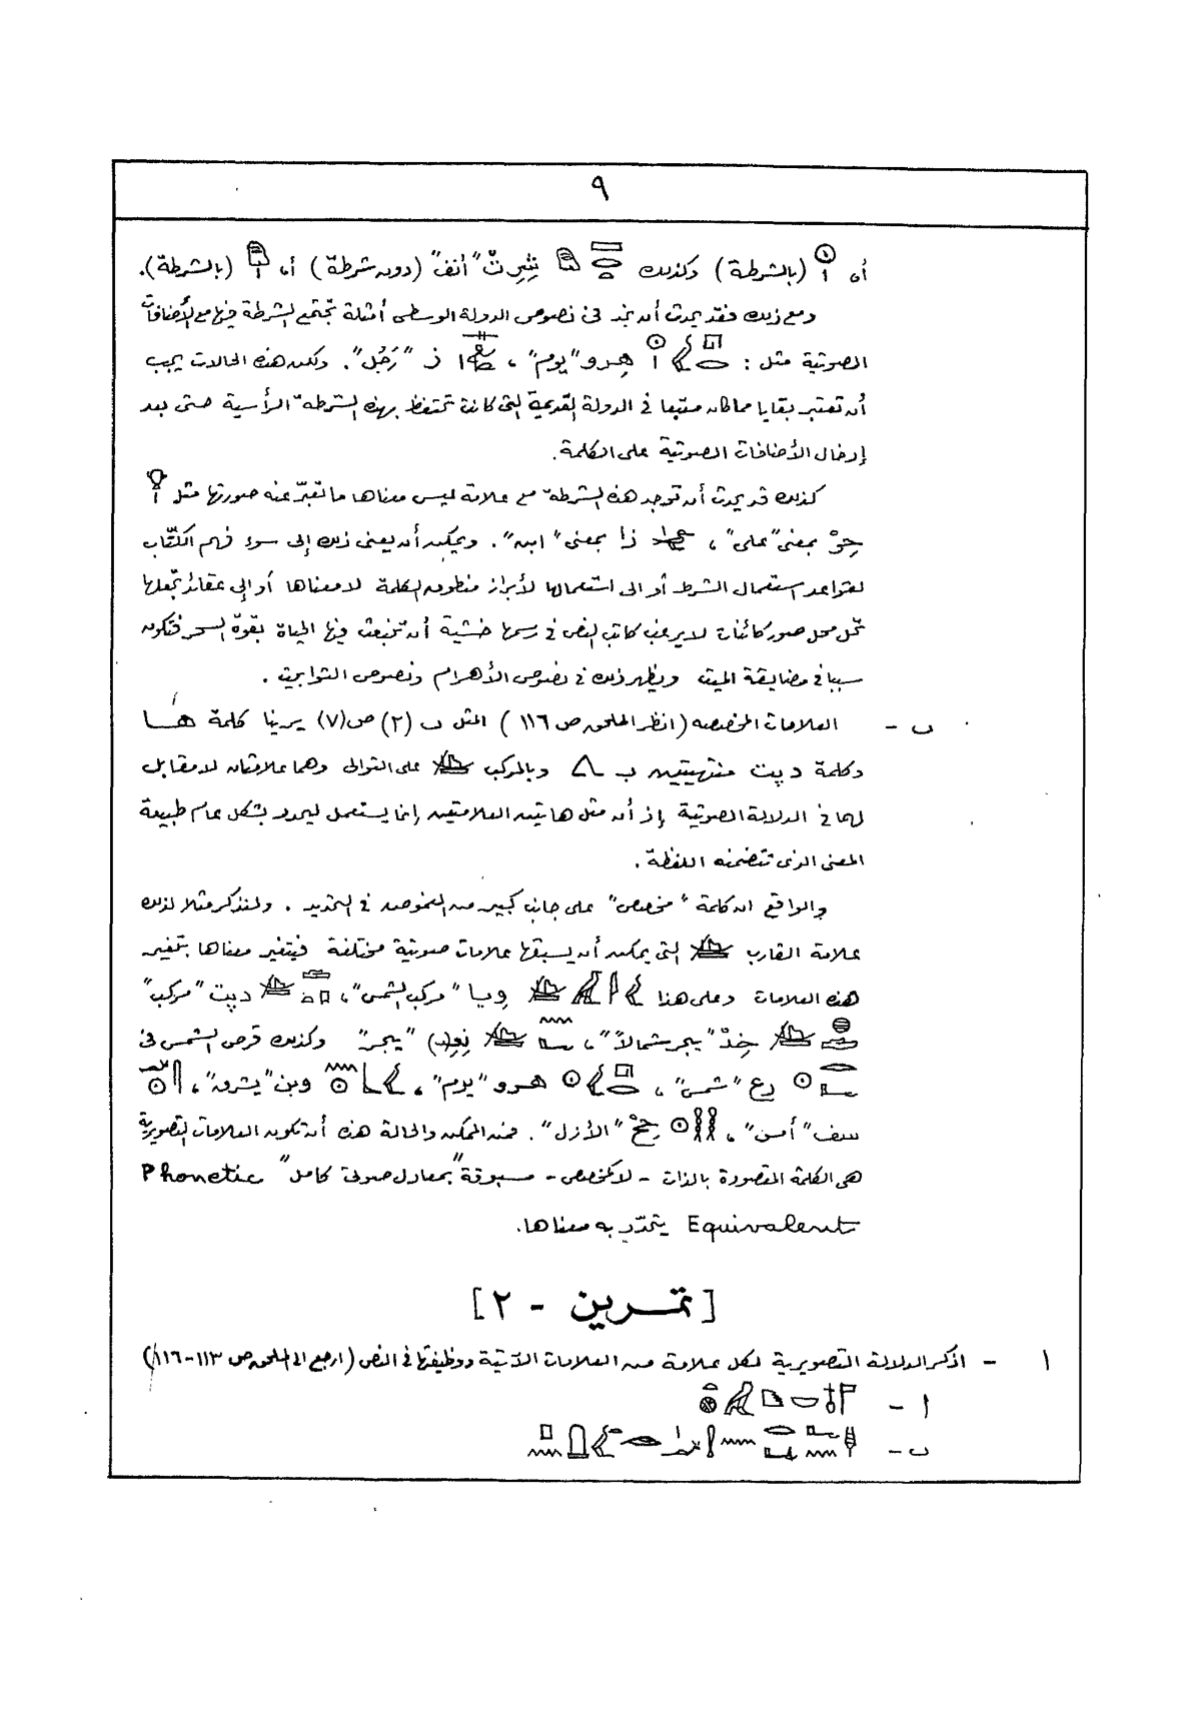 ٩
أو (بالشرطة) وكذلك شِرِتْ "أنف" (دون شرطة) أو (بالشرطة).
ومع ذلك فقد يحدث أن نجد فى نصوص الدولة الوسطى أمثلة تجتمع الشرطة فيها مع الأضافات
الصوتية مثل : هِرو "يوم" ، ز "رَجُل". ولكن هذه الحالات يجب
أن تعتبر بقايا مما كان متبعا فى الدولة القديمة التى كانت تحتفظ بهذه الشرطة الرأسية حتى بعد
إدخال الأضافات الصوتية على الكلمة.
كذلك قد يحدث أن توجد هذه الشرطة مع علامة ليس معناها ما تعبّر عنه صورتها مثل
حِرْ بمعنى "على" ، زا بمعنى "ابن". ويمكن أن يعزى ذلك إلى سوء فهم الكتّاب
لقواعد استعمال الشرط أو الى استعمالها لأبراز منطوق الكلمة لا معناها أو إلى عقائد تجعلها
تحل محل صور كائنات لا يرغب كاتب النص فى رسمها خشية أن تنبعث فيها الحياة بقوة السحر فتكون
سببا فى مضايقة الميت ويظهر ذلك فى نصوص الأهرام ونصوص التوابيت .
ب - العلامات المخصصه (انظر الملحق ص ١١٦ ) المثل ب (٢) ص (٧) يرينا كلمة هـا
وكلمة دپت منتهيتين بـ وبالمركب على التوالى وهما علامتان لا مقابل
لهما فى الدلالة الصوتية إذ أن مثل هاتين العلامتين إنما يستعمل ليحدد بشكل عام طبيعة
المعنى الذى تتضمنه اللفظة .
والواقع ان كلمة "مخصص" على جانب كبير من الغموض فى التحديد . ولنذكر مثلا لذلك
علامة القارب التى يمكن أن يسبقها علامات صوتية مختلفة فيتغير معناها بتغير
هذه العلامات وعلى هذا وِيا "مركب الشمس"، دپت "مركب"
خِدْ "يبحر شمالاً" ، نِعِ(د) "يبحر" وكذلك قرص الشمس فى
رع "شمس" ، هـرو "يوم" ، وبن "يشرق" ،
سف "أمس" ، حِحْ "الأزل" . فمن الممكن والحالة هذه أن تكون العلامات التصويرية
هى الكلمة المقصودة بالذات - لا كمخصص - مسبوقة "بمعادل صوتى كامل" Phonetic
Equivalent يتحدّد به معناها.
[تمـرين - ٢]
١ - اذكر الدلالة التصويرية لكل علامة من العلامات الآتية ووظيفتها فى النص (ارجع الى الملحق ص ١١٣-١١٦)
ا -
ب -